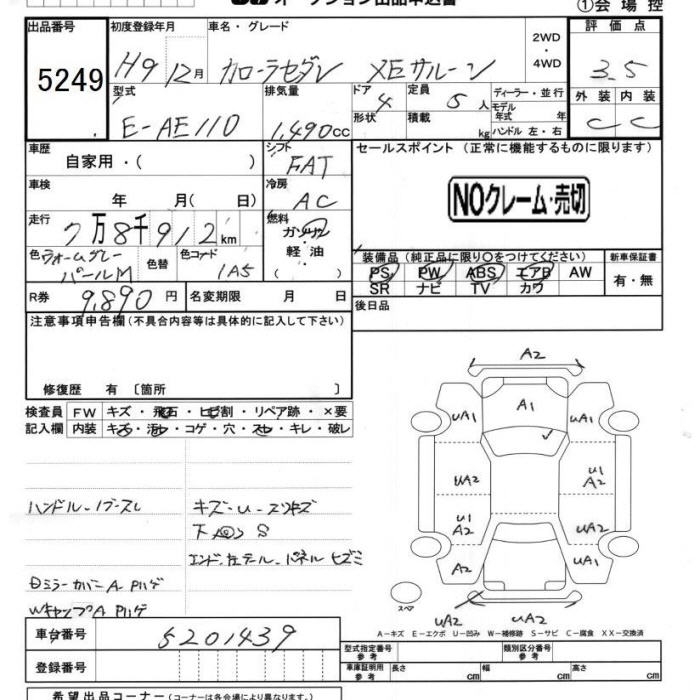 オークション出品申込書
①会場控
出品番号
初度登録年月
車名・グレード
2WD・4WD
評価点
5249
H9 12月
カローラセダン XEサルーン
3.5
型式
排気量
ドア
定員
ディーラー・並行
外装 内装
E-AE110
1,490cc
4
5人
モデル年式 年
C C
形状
積載
kg
ハンドル 左・右
車歴
自家用・( )
シフト
FAT
セールスポイント (正常に機能するものに限ります)
車検
年 月( 日)
冷房
AC
NOクレーム・売切
走行
7万8千912km
燃料
ガソリン・軽油
( )
色
ウォームグレーパールM
色替
色コード
1A5
装備品 (純正品に限り○をつけてください)
新車保証書
PS PW ABS エアB AW
有・無
SR ナビ TV カワ
R券
9,890円
名変期限 月 日
後日品
注意事項申告欄 (不具合内容等は具体的に記入して下さい)
修復歴 有 〔箇所 〕
検査員記入欄
FW
キズ・飛石・ヒビ割・リペア跡・×要
内装
キズ・汚レ・コゲ・穴・スレ・キレ・破レ
ハンドル-1ブスレ
キズ-U-スリキズ
下 S
エンド、左テール-パネル ヒズミ
Dミラーカバー A PLハゲ
WキャップA PLハゲ
A2
UA1
A1
UA1
UA2
U1
A2
U1
A2
UA2
A2
UA1
スペア
UA2
UA2
A-キズ E-エクボ U-凹み W-補修跡 S-サビ C-腐食 XX-交換済
車台番号
5201439
登録番号
型式指定番号 参考
類別区分番号 参考
車庫証明用 参考
長さ cm
幅 cm
高さ cm
希望出品コーナー (コーナーは各会場により異なります。)